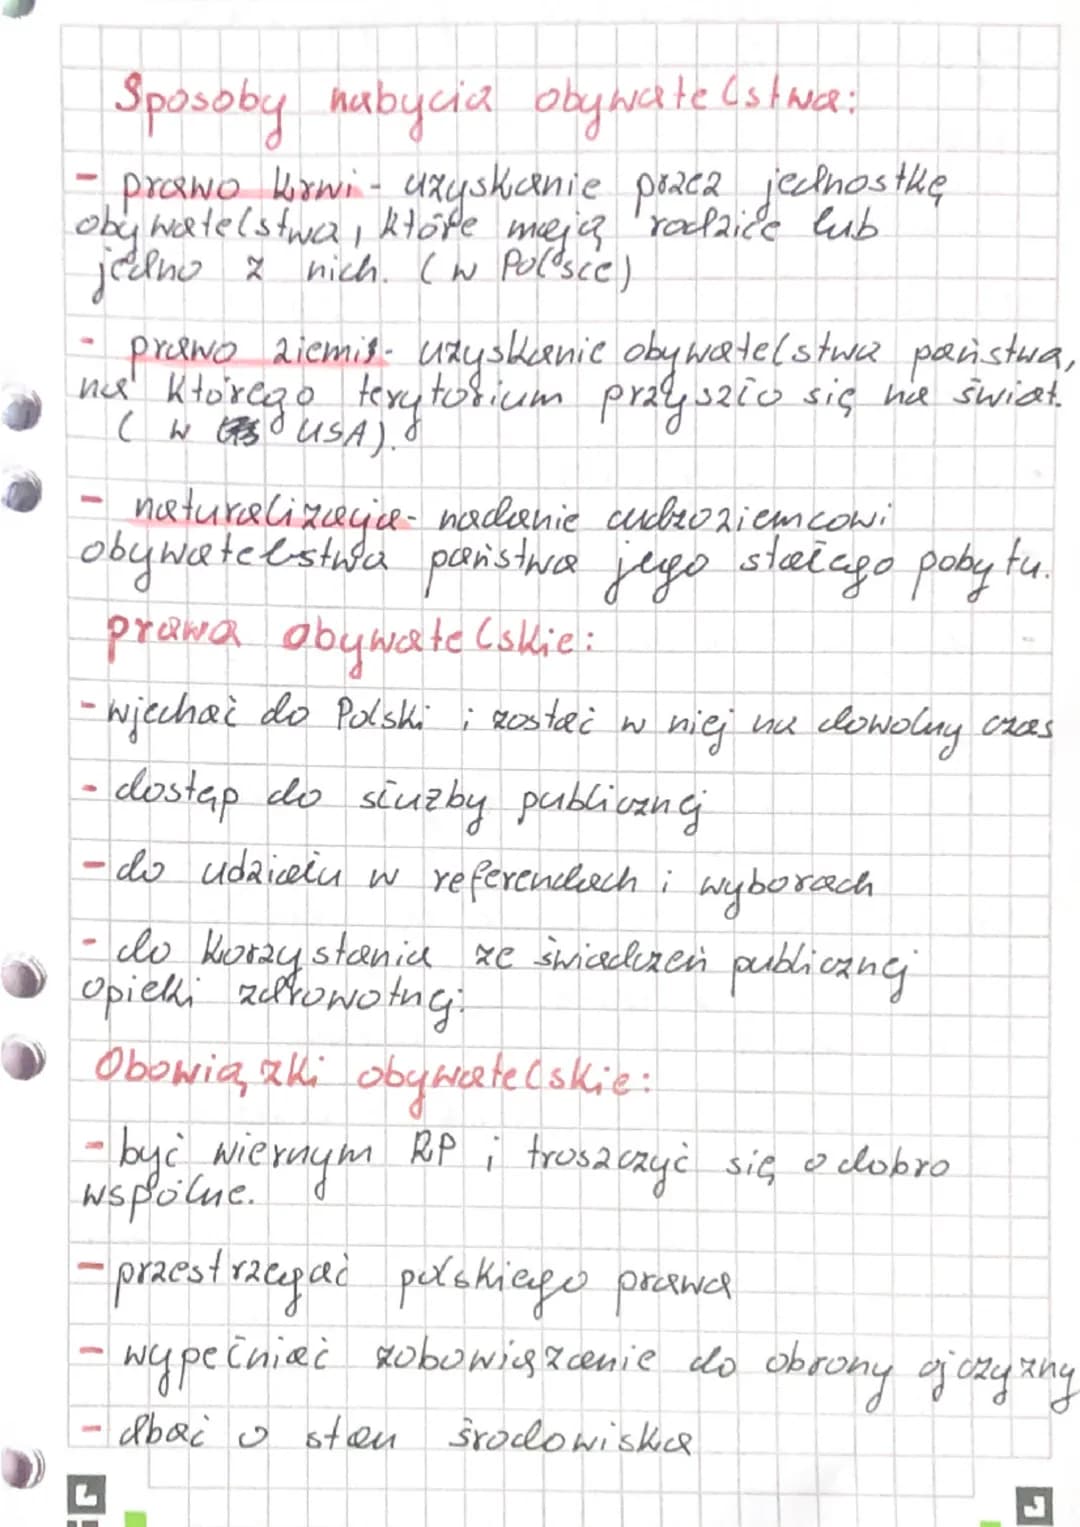 Sposoby nabycia obywatelstwa:
- prawo krwi - uzyskanie przez jednostkę
obywatelstwa, które mają rodzice lub
jedno z nich. (w Polsce)
- prawo ziemi - uzyskanie obywatelstwa państwa,
na którego terytorium przyszło się na świat.
( w USA).
- naturalizacja - nadanie cudzoziemcowi
obywatelstwa państwa jego stałego pobytu.
prawa obywatelskie:
- wjechać do Polski i zostać w niej na dowolny czas
- dostęp do służby publicznej
- do udziału w referendach i wyborach
- do korzystania ze świadczeń publicznej
opieki zdrowotnej.
Obowiązki obywatelskie:
- być wiernym RP i troszczyć się o dobro
wspólne.
- przestrzegać polskiego prawa
- wypełniać zobowiązanie do obrony ojczyzny
- dbać o stan środowiska